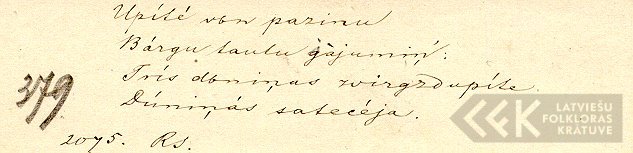 Upíté van pazinu
Bárgu tautu gàjumiņ':
Trís dàniņas zvirgzdupíte
Dúniņás satecéja.
379
2075. Rs.
LATVIEŠU
FOLKLORAS
KRĀTUVE